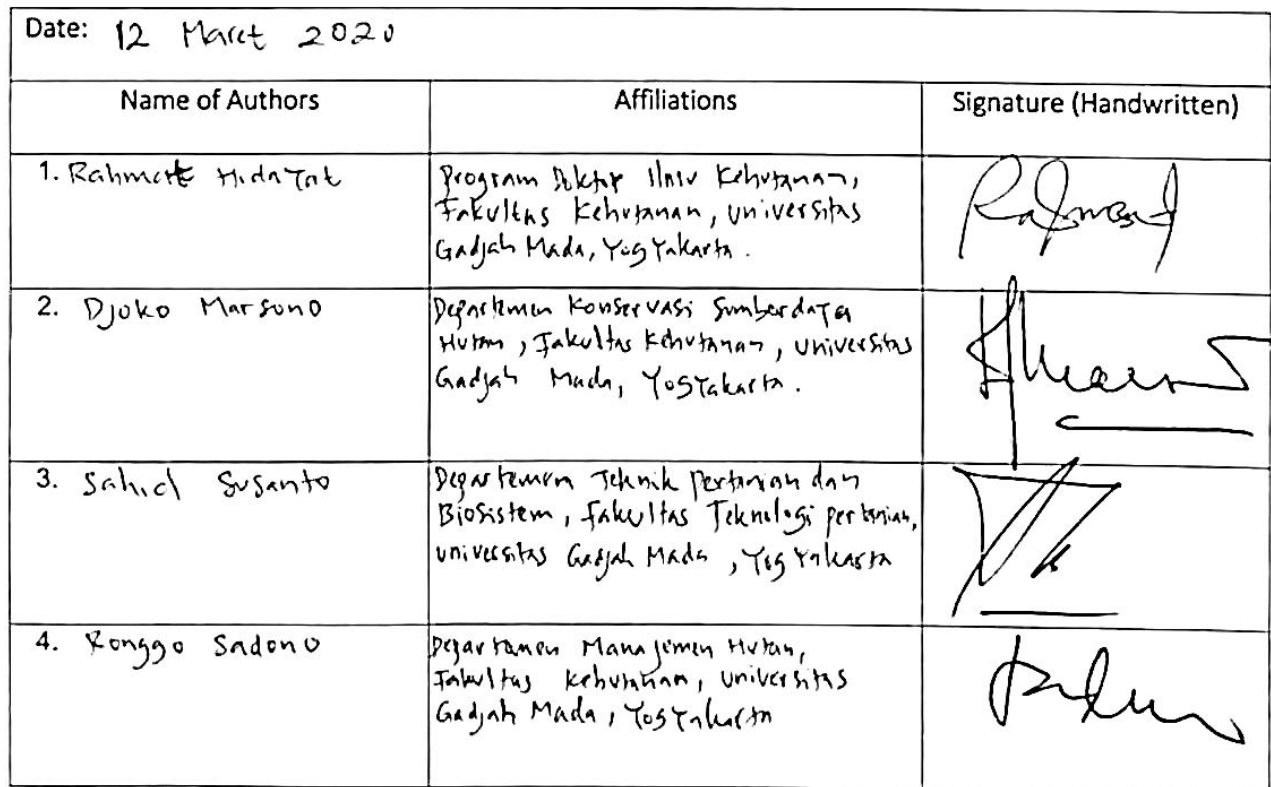 Date: 12 Maret 2020
Name of Authors Affiliations Signature (Handwritten)
1. Rahmat Hidayat
Program Doktor Ilmu Kehutanan,
Fakultas Kehutanan, Universitas
Gadjah Mada, Yogyakarta.
2. Djoko Marsono
Departemen Konservasi Sumberdaya
Hutan, Fakultas Kehutanan, Universitas
Gadjah Mada, Yogyakarta.
3. Sahid Susanto
Departemen Teknik Pertanian dan
Biosistem, Fakultas Teknologi Pertanian,
Universitas Gadjah Mada, Yogyakarta
4. Ronggo Sadono
Departemen Manajemen Hutan,
Fakultas Kehutanan, Universitas
Gadjah Mada, Yogyakarta